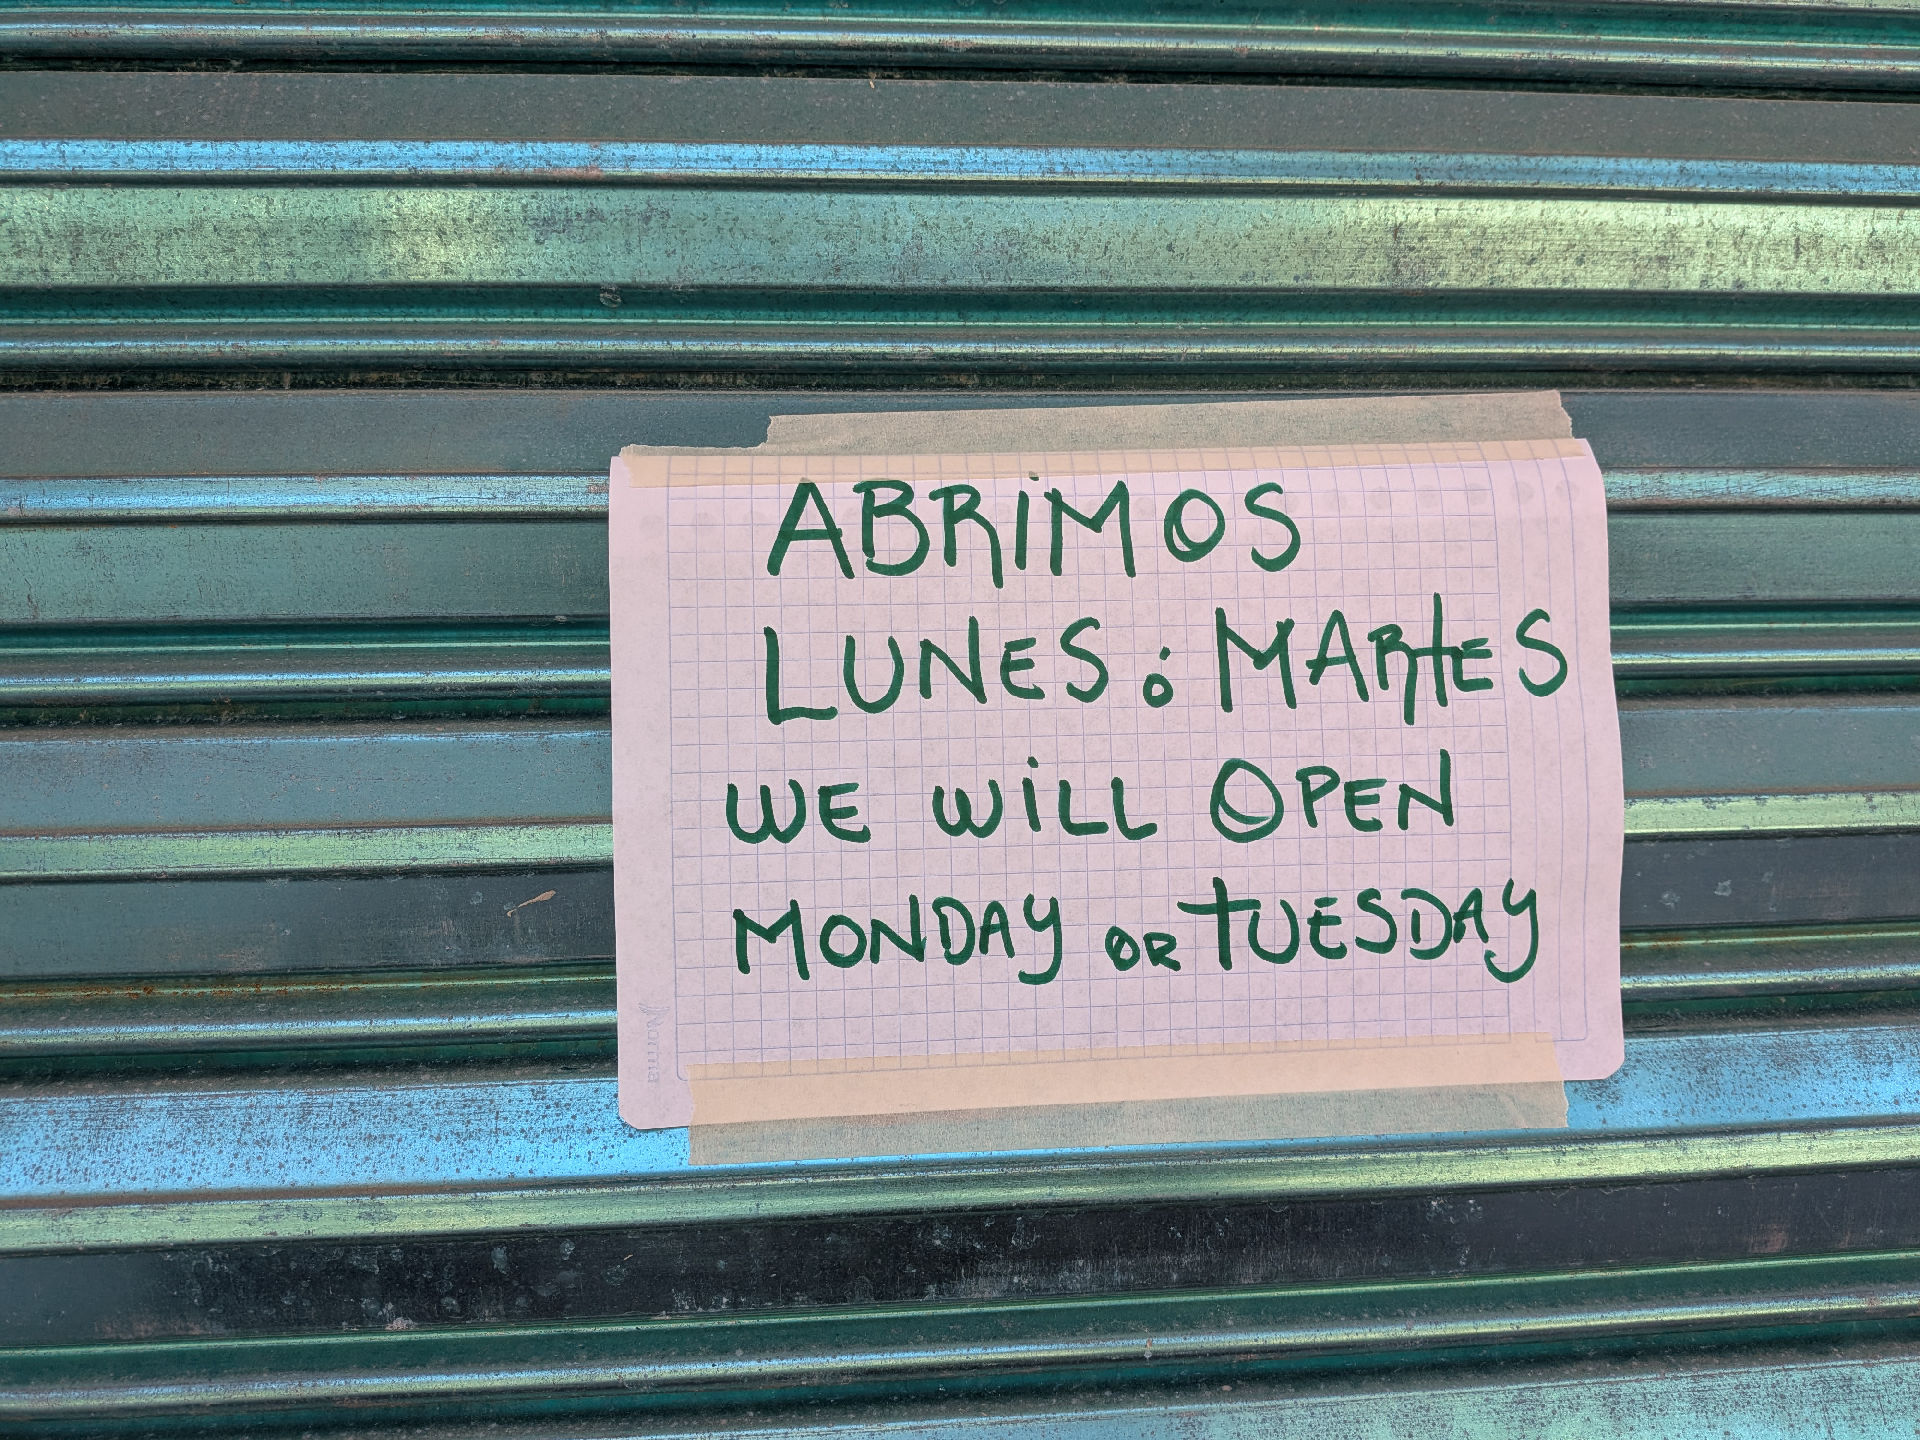 ABRIMOS
LUNES ó MARTES
WE WILL OPEN
MONDAY OR TUESDAY